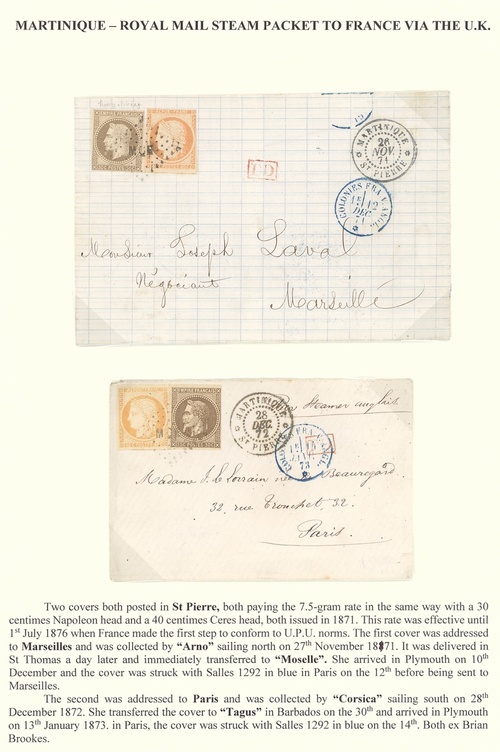 MARTINIQUE – ROYAL MAIL STEAM PACKET TO FRANCE VIA THE U.K.
EMPIRE FRANÇAIS
MQE
MARTINIQUE
26
NOV.
71
ST PIERRE
P.D
COLONIES FRA. V. ANGL.
12
DEC.
71
Monsieur Joseph Laval
Négociant
Marseille
EMPIRE FRANÇAIS
MARTINIQUE
28
DEC.
72
ST PIERRE
Steamer anglais
COLONIES FRA. V. ANGL.
14
73
Madame J. Le Lorrain née Beauregard.
32, rue Tronchet 32.
Paris.
Two covers both posted in St Pierre, both paying the 7.5-gram rate in the same way with a 30
centimes Napoleon head and a 40 centimes Ceres head, both issued in 1871. This rate was effective until
1st July 1876 when France made the first step to conform to U.P.U. norms. The first cover was addressed
to Marseilles and was collected by “Arno” sailing north on 27th November 1871. It was delivered in
St Thomas a day later and immediately transferred to “Moselle”. She arrived in Plymouth on 10th
December and the cover was struck with Salles 1292 in blue in Paris on the 12th before being sent to
Marseilles.
The second was addressed to Paris and was collected by “Corsica” sailing south on 28th
December 1872. She transferred the cover to “Tagus” in Barbados on the 30th and arrived in Plymouth
on 13th January 1873. in Paris, the cover was struck with Salles 1292 in blue on the 14th. Both ex Brian
Brookes.